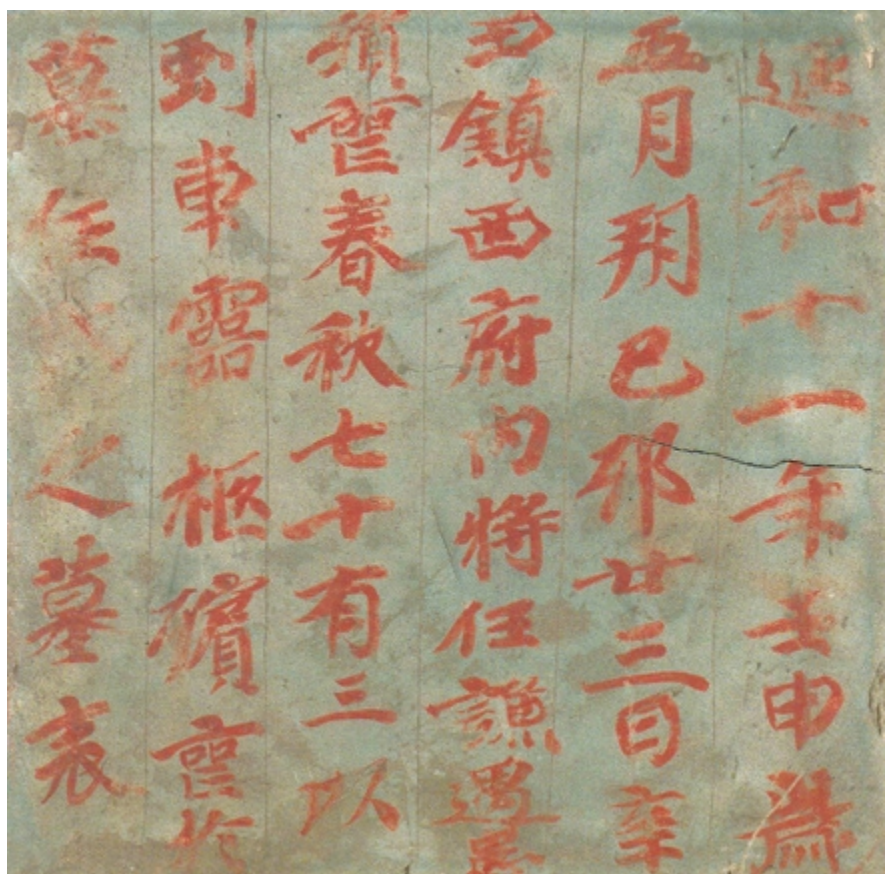 延和十一年壬申歲
五月朔己卯廿三日辛
丑鎮西府内將任謙遇患
殞喪春秋七十有三以
車靈柩殯喪於
墓任氏之墓表